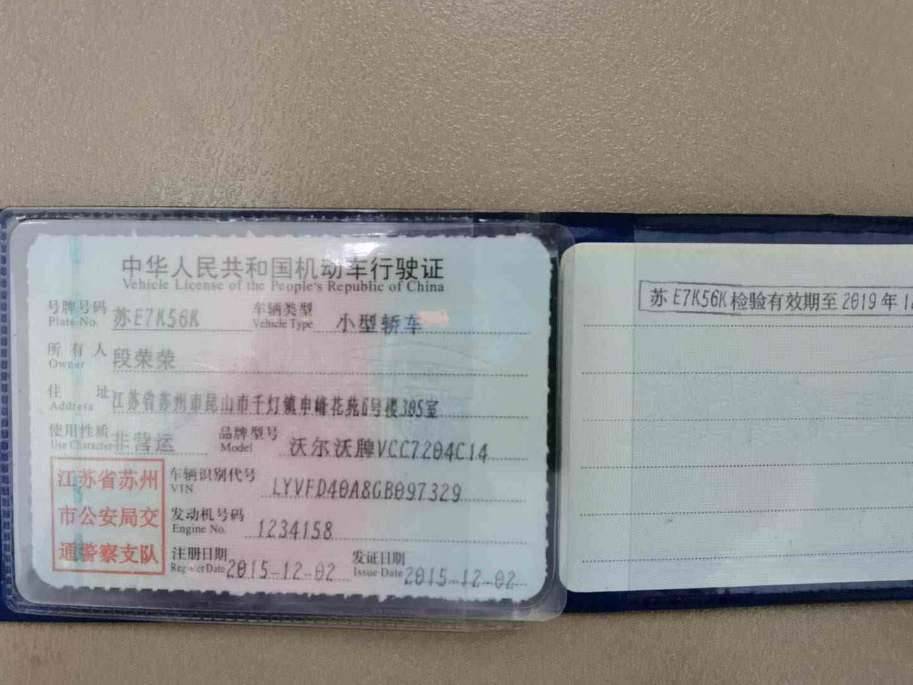 中华人民共和国机动车行驶证
Vehicle License of the People's Republic of China
号牌号码 苏E7K56K 车辆类型 小型轿车
Plate No. Vehicle Type
所有人 段荣荣
Owner
住址 江苏省苏州市昆山市千灯镇申峰花苑6号楼305室
Address
使用性质 非营运 品牌型号 沃尔沃牌VCC7204C14
Use Character Model
江苏省苏州
市公安局交
通警察支队
车辆识别代号 LYVFD40A8GB097329
VIN
发动机号码 1234158
Engine No.
注册日期 2015-12-02 发证日期 2015-12-02
Register Date Issue Date
苏E7K56K检验有效期至2019年1